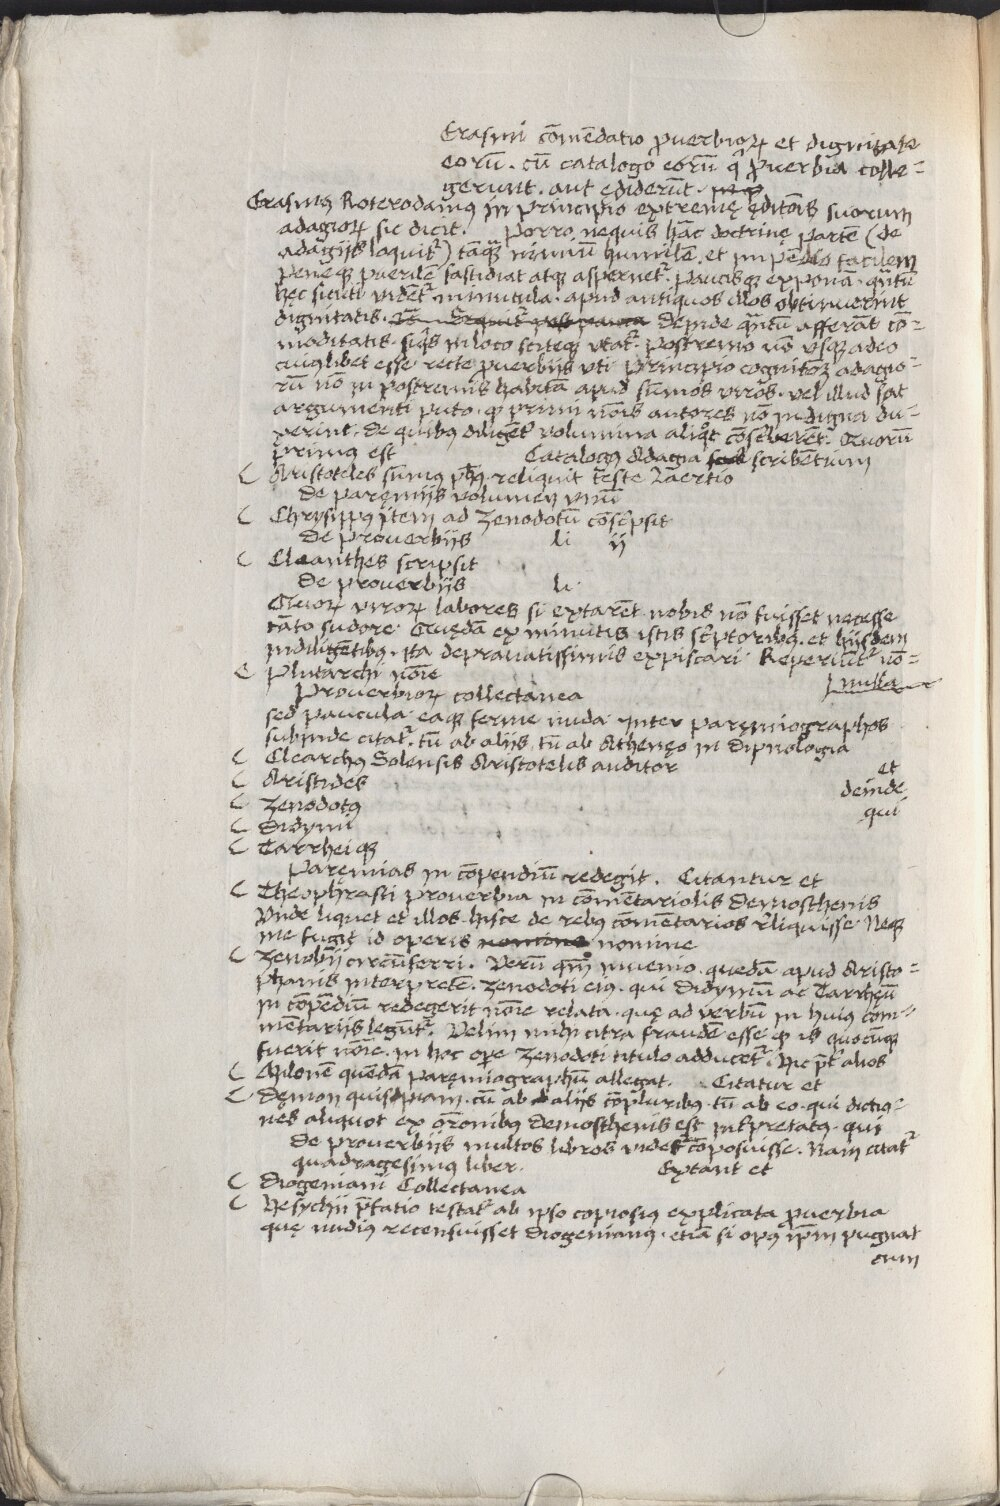 Erasmi cōmēdatio ꝓuerbioꝝ et dignitate
eorū. cū catalogo eorū q̄ ꝓuerbia colle-
gerunt. aut ediderūt.
Erasmꝰ Roterodamꝰ in principio extremę ędit̄ois suorum
adagioꝝ sic dicit. Porro nequis hāc doctrinę partē (de
adagijs loquit᷑) tāqꝫ nimiū humilē, et facilem
peneqꝫ puerilē fastidiat atqꝫ aspernet᷑. paucisqꝫ exponā. quātū
hęc sicuti vidēt᷑ minutula. apud antiquos illos obtinuerint
dignitatis. Deinde quātū afferāt cō-
moditatis. siq̄s in loco sciteqꝫ vtat᷑. Postremo nō vsqꝫ adeo
cuiuslibet esse recte ꝓuerbijs vti. Principio cognitōꝫ adagio-
rū nō in postremis habitā apud sūmos viros. vel illud sat
argumenti puto. ꝙ primi nōis autores nō indigna du-
xerint. de quibꝰ diligēt᷑ volumina aliqͦt cōscriberēt᷑. Quorū
primus est Catalogꝰ Adagia scribentium
C Aristoteles sūmꝰ pħs. reliquit teste Laertio
De paręmijs volumen vnū
C Chrysippꝰ item ad Zenodotū cōsc̄psit
De prouerbijs li ij
C Cleanthes scripsit
De prouerbijs li.
Quoꝝ viroꝝ labores si extarēt nobis nō fuisset necesse
tāto sudore. Quędā ex minutis istis sc̄ptoribꝰ. et hijsdem
indiligētibꝰ. ita deprauatissimis expiscari. Reperiūt᷑ nō-
nulla
C Plutarchi nōie
Prouerbioꝝ collectanea
sed paucula. eaqꝫ ferme nuda. Inter paręmiographos
subinde citat᷑. tū ab alijs, tū ab Athenęo in dipnologia
C Clearchꝰ Solensis Aristotelis auditor
et
C Aristides
deinde
C Zenodotꝰ
qui
C Didymi
C Tarrheiqꝫ
Paręmias in cōpendiū redegit. Citantur et
C Theophrasti prouerbia in cōmētariolis Demosthenis
Vnde liquet et illos hisce de rebꝰ cōmētarios r̄liquisse. Neqꝫ
me fugit id operis nomine
C Zenobij circūferri. Verū qm̄ inuenio quedā apud Aristo-
phanis interpretē. Zenodoti eiꝰ. qui Didymū ac Tarrhęū
in cōpēdiū redegerit nōie relata. quę ad verbū in huius com-
mētarijs legūt᷑. Velim mihi citra fraudē esse. ꝙ is quocūqꝫ
fuerit nōie. in hoc oꝑe Zenodoti titulo adducet᷑. Hic p̄t᷑ alios
C Milonē quendā paręmiographū allegat. Citatur et
C Dęmon quispiam. cū ab alijs cōpluribꝰ. tū ab eo. qui dictio-
nes aliquot ex or̄onibus Demosthenis est int̄pretatꝰ. qui
De prouerbijs multos libros videt᷑ cōposuisse. Nam citat᷑
quadragesimꝰ liber. Extant et
C Diogeniani Collectanea
C Hesychii p̄fatio testat᷑ ab ipso copiosiꝰ explicata ꝓuerbia
quę nudius recensuisset Diogenianꝰ. etiā si opꝰ ip̄m pugnat
cum